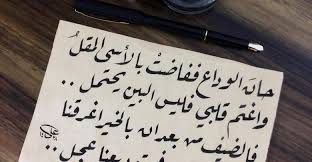 حانَ الوداع ففاضتْ بالأسى المقلُ
واغتم قلبي فليس البين يحتمل ..
فالصيف من بعد ان بالخير اغرقنا
عجل ..